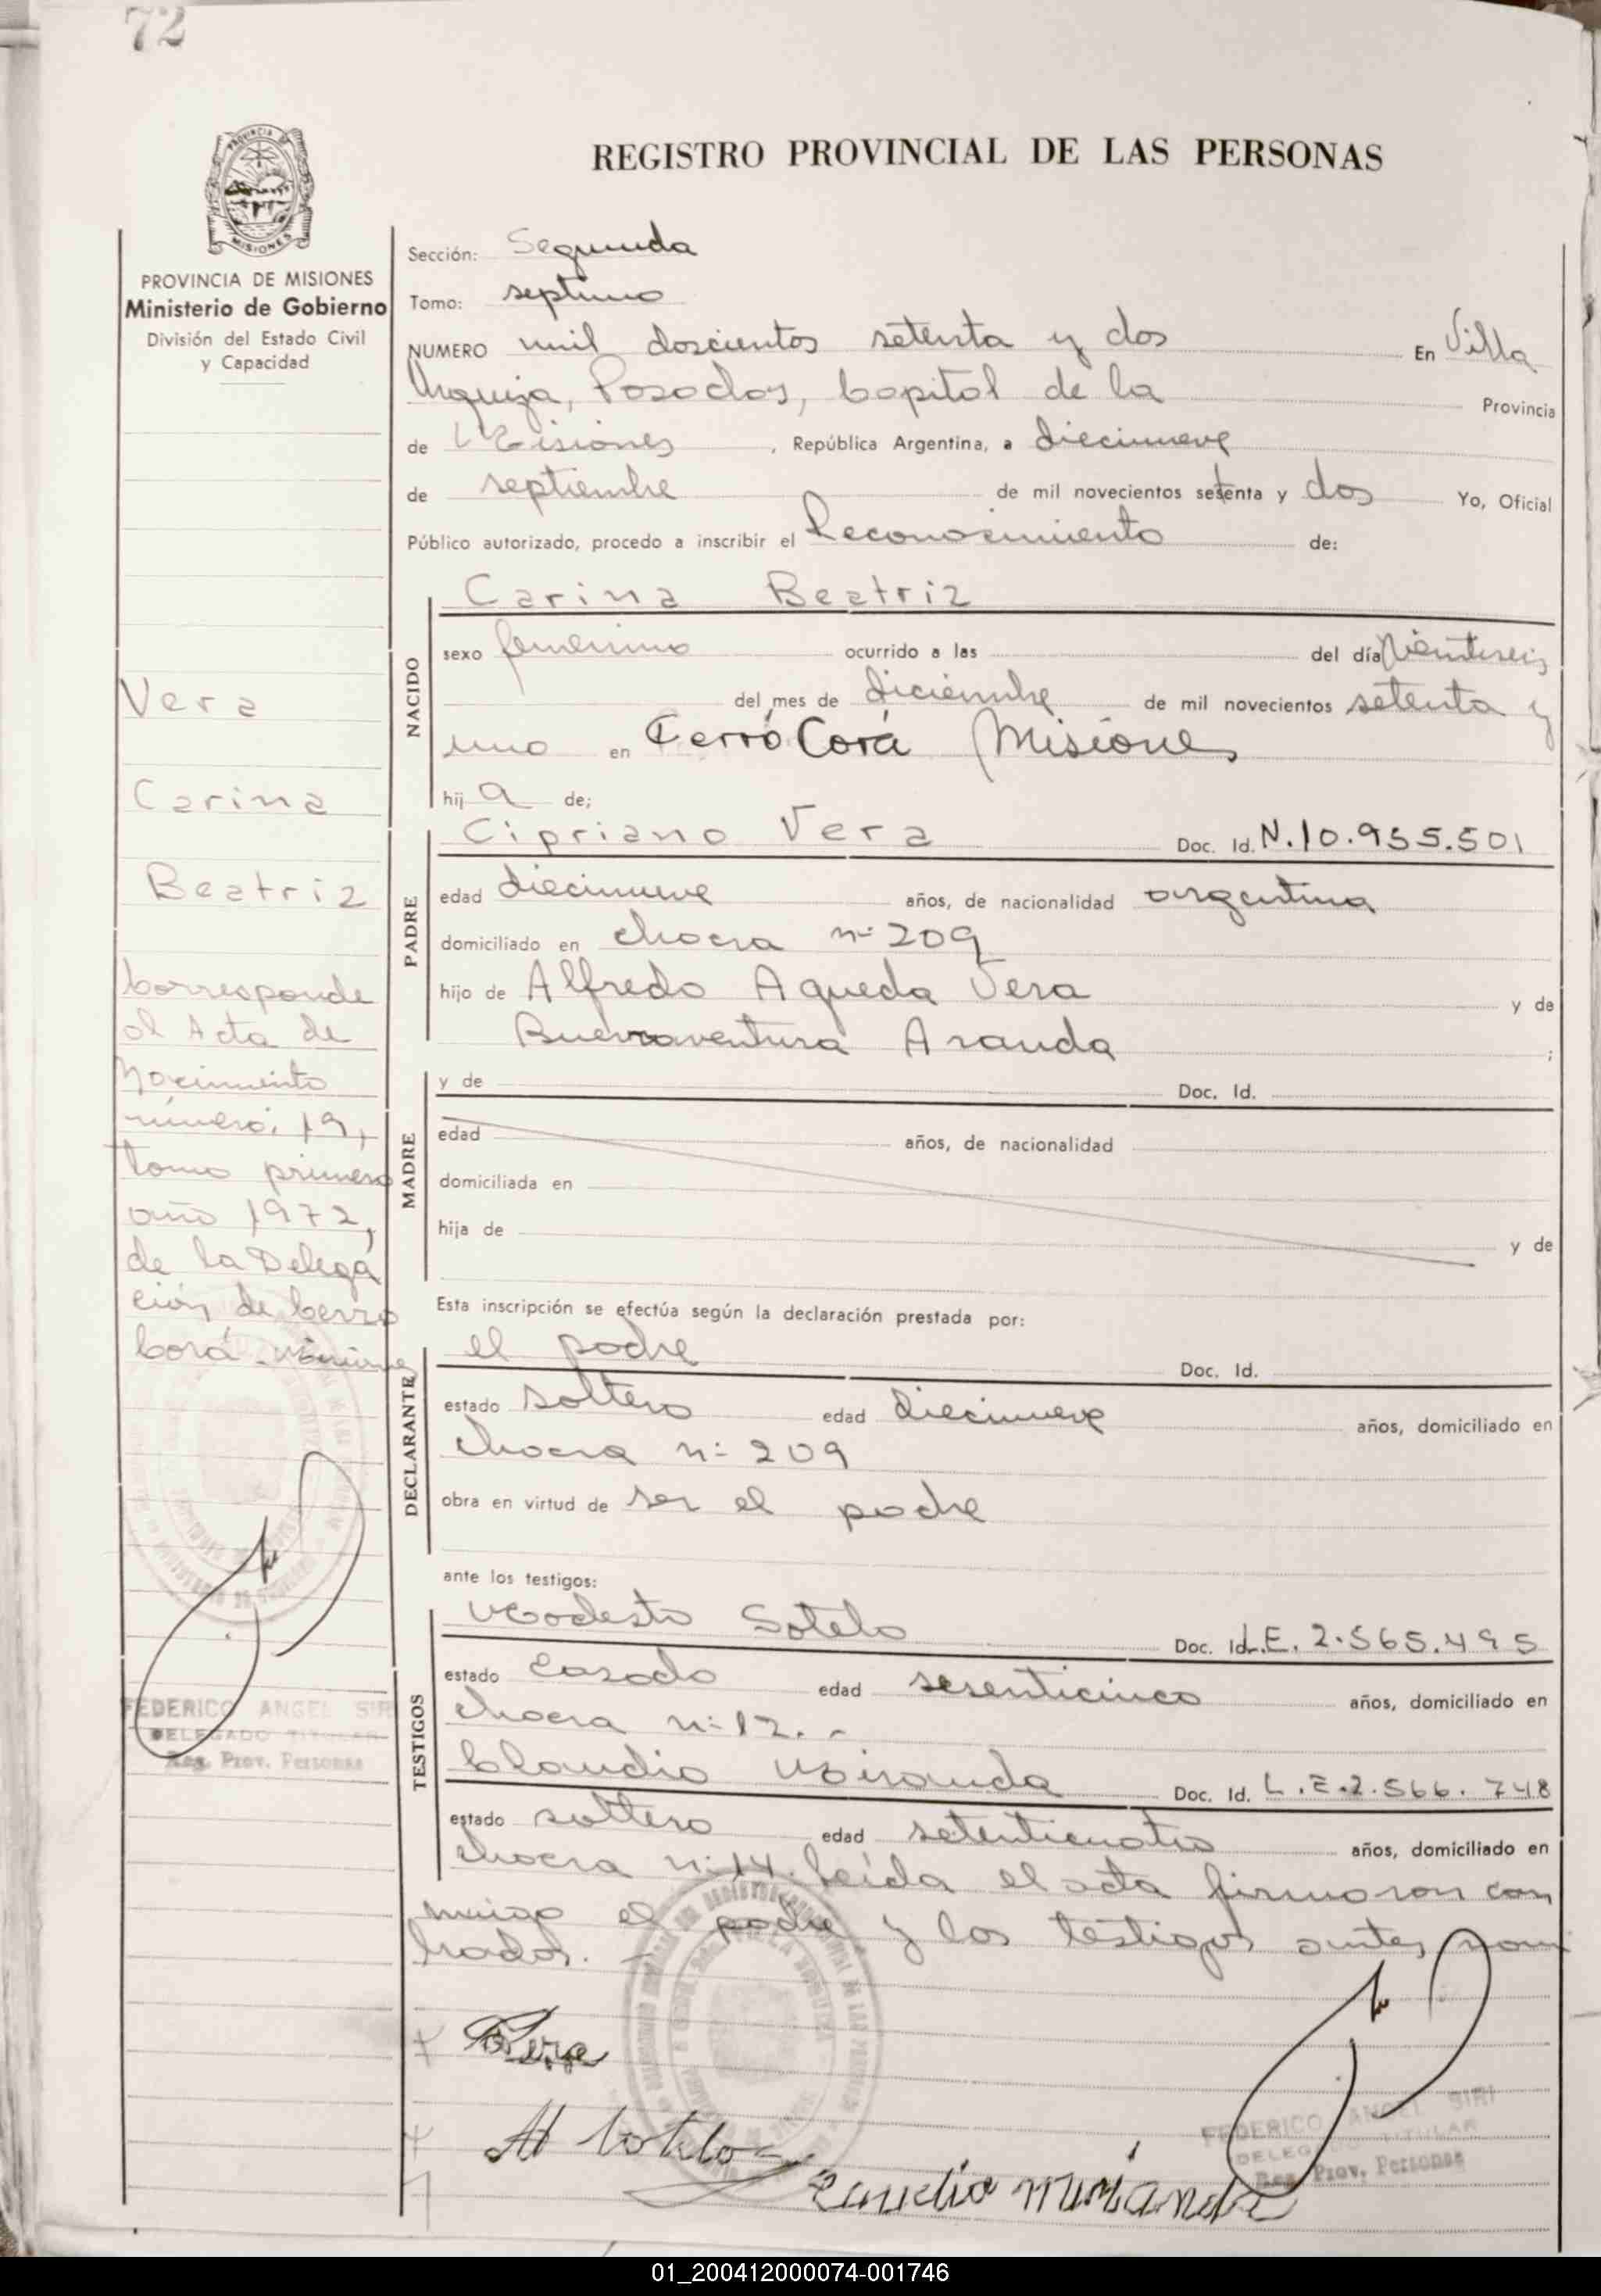 72
REGISTRO PROVINCIAL DE LAS PERSONAS
PROVINCIA DE MISIONES
Ministerio de Gobierno
División del Estado Civil
y Capacidad
Vera
Carina
Beatriz
Corresponde
al Acta de
Nacimiento
número: 19,
tomo primero
año 1972,
de la Delega
ción de Cerro
Corá - Misiones
FEDERICO ANGEL SIRI
DELEGADO TITULAR
Reg. Prov. Personas
Sección: Segunda
Tomo: septimo
NUMERO mil doscientos setenta y dos En Villa
Urquiza, Posadas, Capital de la Provincia
de Misiones, República Argentina, a diecinueve
de septiembre de mil novecientos setenta y dos Yo, Oficial
Público autorizado, procedo a inscribir el Reconocimiento de:
NACIDO
Carina Beatriz
sexo femenino ocurrido a las del día veintiseis
del mes de diciembre de mil novecientos setenta y
uno en Cerro Corá Misiones
hij a de;
PADRE
Cipriano Vera Doc. Id. N.10.955.501
edad diecinueve años, de nacionalidad argentina
domiciliado en chacra nº 209
hijo de Alfredo Agueda Vera y de
Buenaventura Aranda ;
MADRE
y de Doc. Id.
edad años, de nacionalidad
domiciliada en
hija de y de
Esta inscripción se efectúa según la declaración prestada por:
DECLARANTE
el padre Doc. Id.
estado soltero edad diecinueve años, domiciliado en
chacra nº 209
obra en virtud de ser el padre
ante los testigos:
TESTIGOS
Modesto Sotelo Doc. Id. L.E. 2.565.495
estado casado edad sesenticinco años, domiciliado en
chacra nº 12. -
Claudio Miranda Doc. Id. L.E.2.566.748
estado soltero edad setenticuatro años, domiciliado en
chacra nº 14. Leída el acta firmaron con
migo el padre y los testigos antes nom
brados. -
Vera
M Sotelo
Claudio Miranda
FEDERICO ANGEL SIRI
DELEGADO TITULAR
Reg. Prov. Personas
01_200412000074-001746